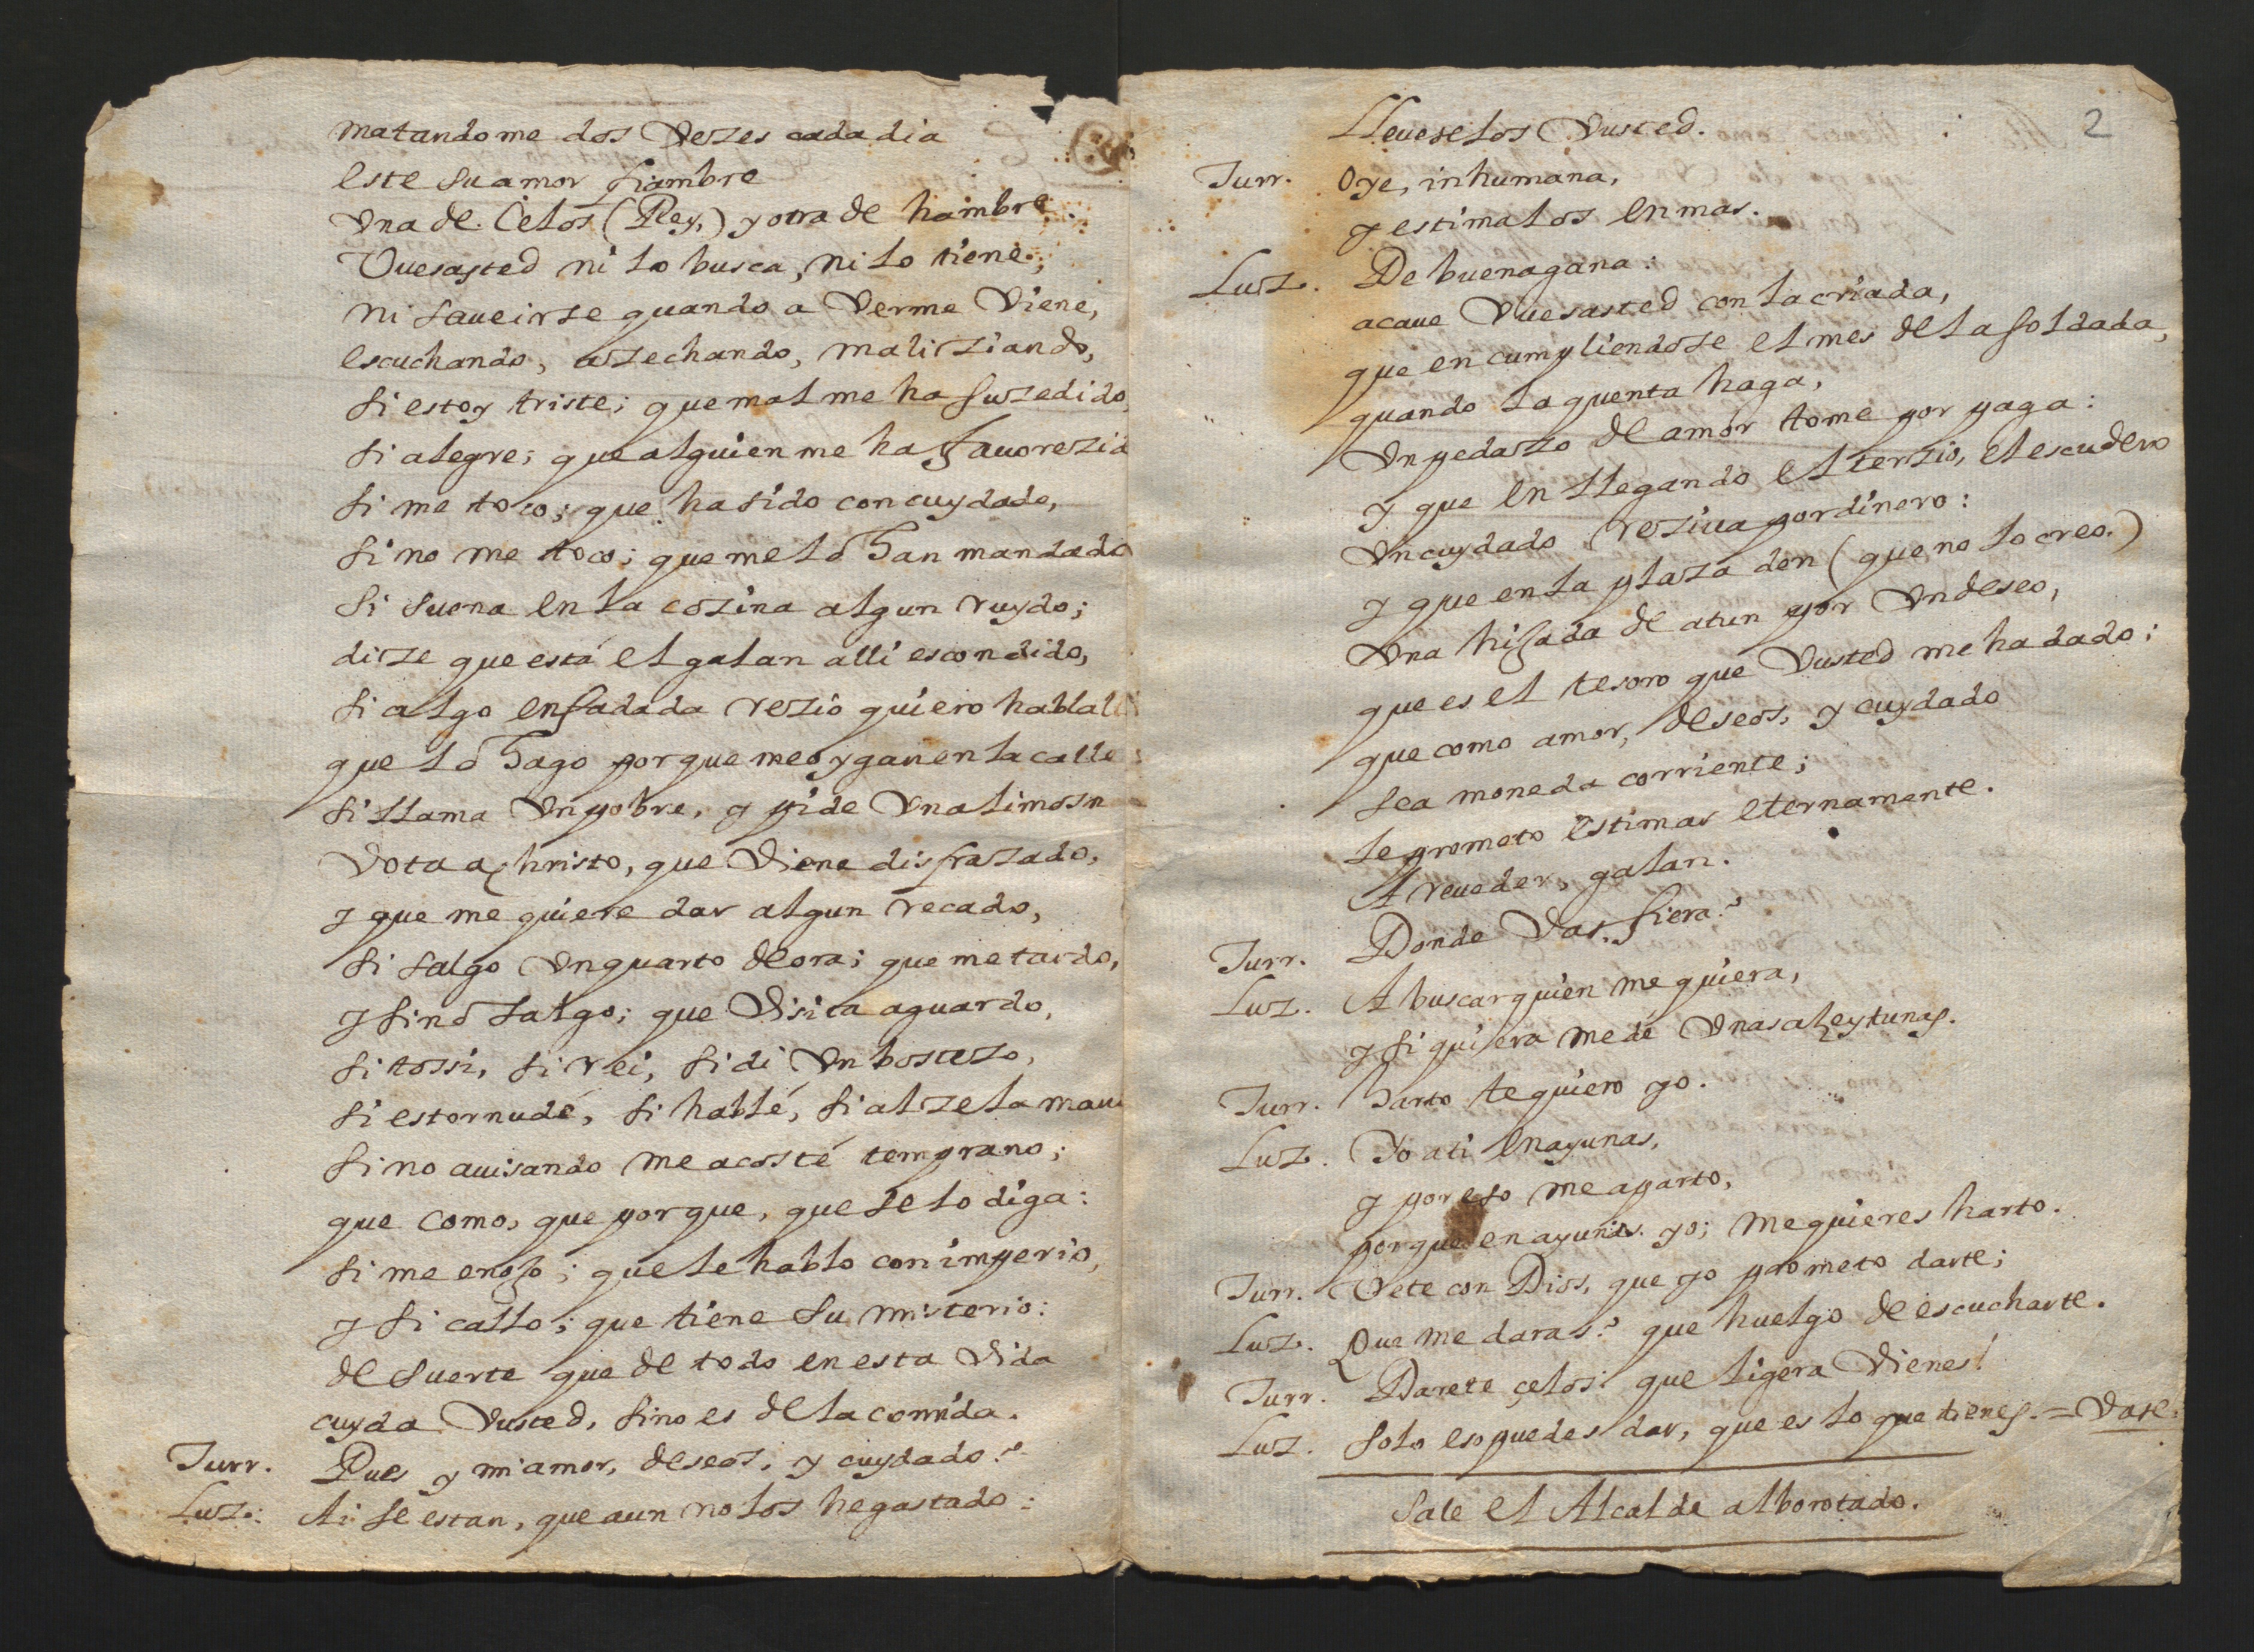 matandome dos Vezes cada dia
este su amor fiambre
Vna de Celos (Rey,) y otra de hambre.
Vuesasted ni lo busca, ni lo tiene,
ni saueirse quando a Verme Viene,
escuchando, azechando, maliziando,
si estoy triste; que mal me ha suzedido,
si alegre; que alguien me ha fauorezid
si me toco; que ha sido con cuydado,
si no me toco; que me lo han mandado
si suena en la cozina algun ruydo;
dize que está el galan alli escondido,
si algo enfadada rezio quiero hablall
que lo hago porque me oygan en la calle
si llama Vn pobre, y pide Vna limosn
Vota a christo, que Viene disfrazado,
y que me quiere dar algun recado,
si salgo Vn quarto de ora; que me tardo,
y si no salgo; que Visita aguardo,
si tossi, si rei, si di Vn bostezo,
si estornudé, si hablé, si alze la mano
si no auisando me acosté temprano;
que como, que porque, que se lo diga:
si me enojo; que le hablo con imperio,
y si callo; que tiene su misterio:
de suerte que de todo en esta Vida
cuyda Vusted, sino es de la comida.
Turr. Pues y mi amor, deseos, y cuydado?
Luz. Ai se estan, que aun no los he gastado:
2
Lleueselos Vusted.
Turr. Oye, inhumana,
y estimalos en mas.
Luz. De buena gana:
acaue Vuesasted con la criada,
que en cumpliendose el mes de la soldada,
quando la quenta haga,
Vn pedazo de amor tome por paga:
y que en llegando el terzio, el escudero
Vn cuydado reziua por dinero:
y que en la plaza den (que no lo creo.)
Vna hijada de atun por Vn deseo,
que es el tesoro que Vusted me ha dado;
que como amor, deseos, y cuydado
sea moneda corriente;
le prometo estimar eternamente.
A reueder, galan.
Turr. Donde Vas, fiera?
Luz. A buscar quien me quiera,
y si quiera me dé Vnas azeytunas.
Turr. Harto te quiero yo.
Luz. Yo a ti en ayunas,
y por eso me aparto,
porque en ayunas yo; me quieres harto.
Turr. Vete con Dios, que yo prometo darte;
Luz. Que me daras? que huelgo de escucharte.
Turr. Darete çelos: que ligera Vienes!
Luz. Solo eso puedes dar, que es lo que tienes. = Vase.
Sale el Alcalde alborotado.